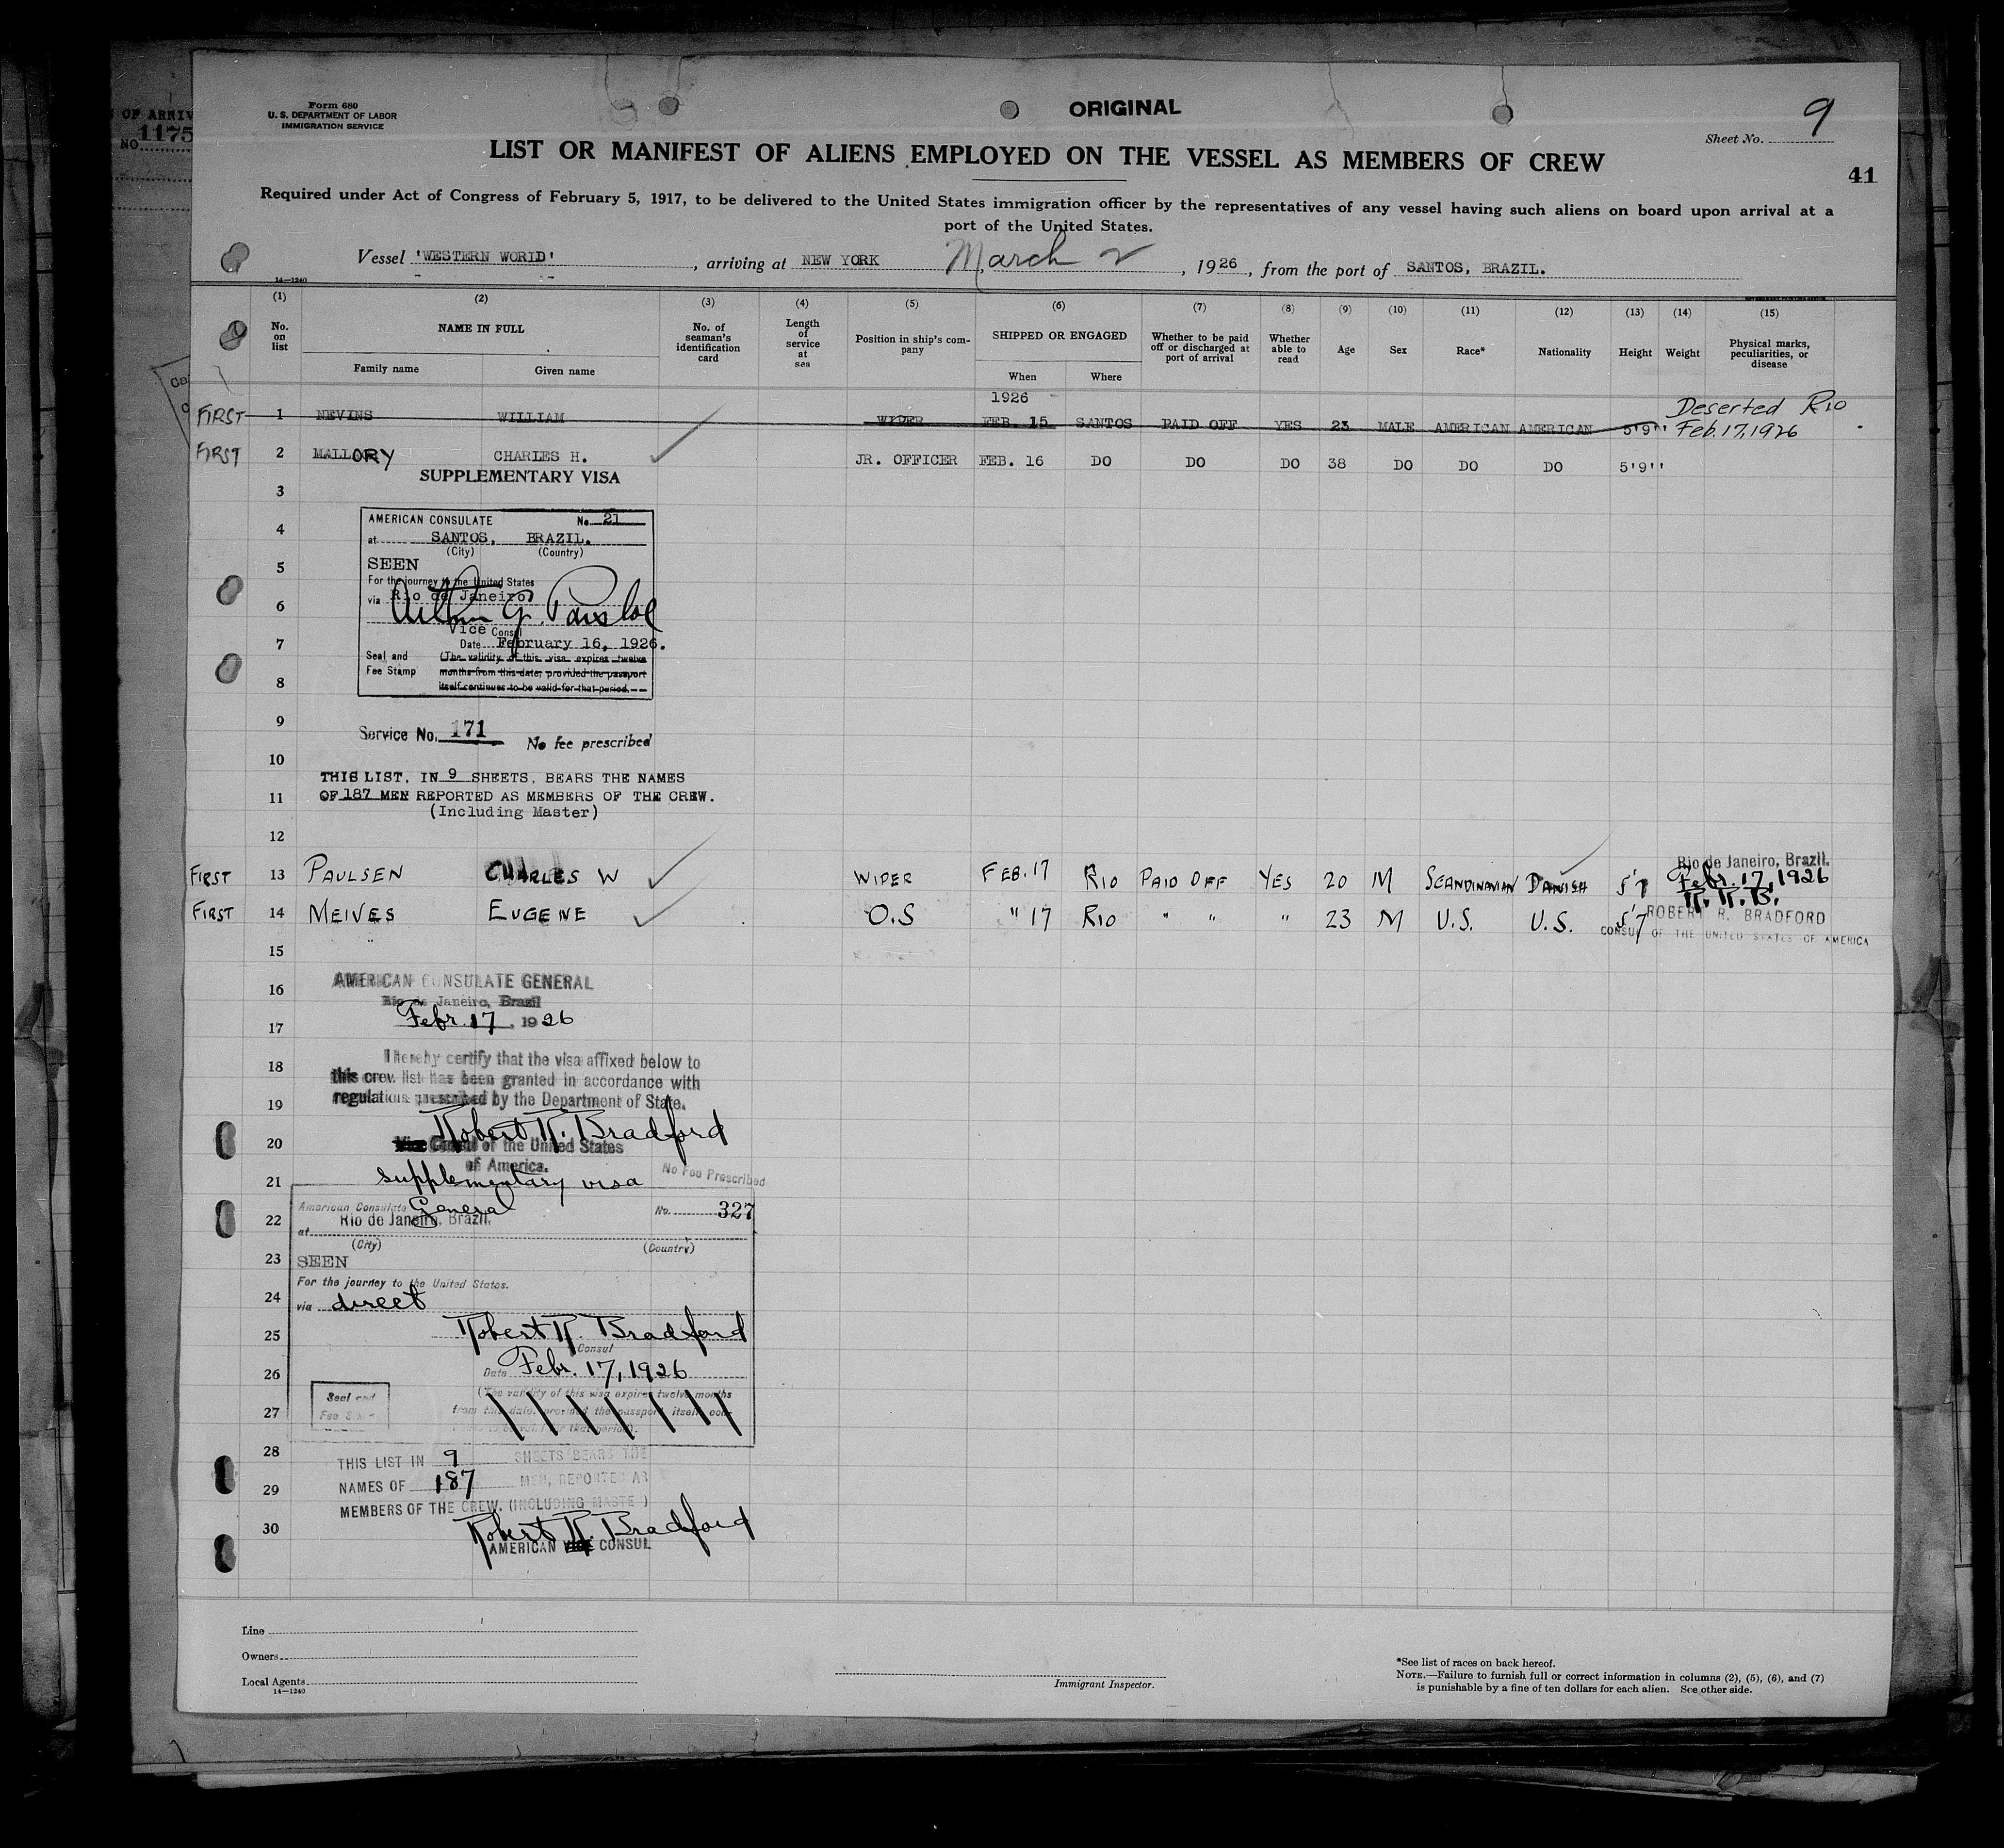 OF ARRIV
NO. 1175
Form 680
U. S. DEPARTMENT OF LABOR
IMMIGRATION SERVICE
ORIGINAL
Sheet No. 9
41
LIST OR MANIFEST OF ALIENS EMPLOYED ON THE VESSEL AS MEMBERS OF CREW
Required under Act of Congress of February 5, 1917, to be delivered to the United States immigration officer by the representatives of any vessel having such aliens on board upon arrival at a
port of the United States.
Vessel 'WESTERN WORLD', arriving at NEW YORK March 2, 1926, from the port of SANTOS, BRAZIL.
14—1240
(1) (2) (3) (4) (5) (6) (7) (8) (9) (10) (11) (12) (13) (14) (15)
No. on list NAME IN FULL Family name Given name No. of seaman's identification card Length of service at sea Position in ship's company SHIPPED OR ENGAGED When Where Whether to be paid off or discharged at port of arrival Whether able to read Age Sex Race* Nationality Height Weight Physical marks, peculiarities, or disease
1926
FIRST 1 NEVINS WILLIAM WIPER FEB. 15 SANTOS PAID OFF YES 23 MALE AMERICAN AMERICAN 5'9'' Deserted Rio Feb.17,1926
FIRST 2 MALLORY CHARLES H. JR. OFFICER FEB. 16 DO DO DO 38 DO DO DO 5'9''
SUPPLEMENTARY VISA
3
AMERICAN CONSULATE No. 21
4
at SANTOS, BRAZIL.
(City) (Country)
SEEN
5
For the journey to the United States
via Rio de Janeiro
6
Arthur G. Parsloe
Vice Consul
7
Date February 16, 1926.
Seal and Fee Stamp (The validity of this visa expires twelve
months from this date, provided the passport
8
itself continues to be valid for that period.
9
Service No. 171 No fee prescribed
10
THIS LIST, IN 9 SHEETS, BEARS THE NAMES
11
OF 187 MEN REPORTED AS MEMBERS OF THE CREW.
(Including Master)
12
FIRST 13 PAULSEN CHARLES W WIPER FEB. 17 RIO PAID OFF YES 20 M SCANDINAVIAN DANISH 5'7
Rio de Janeiro, Brazil.
Febr. 17, 1926
R. R. B.
FIRST 14 MEIVES EUGENE O.S " 17 RIO " " " 23 M U.S. U.S. 5'7
ROBERT R. BRADFORD
CONSUL OF THE UNITED STATES OF AMERICA
15
16
AMERICAN CONSULATE GENERAL
Rio de Janeiro, Brazil
17
Febr. 17, 1926
18
I hereby certify that the visa affixed below to
this crew list has been granted in accordance with
19
regulations prescribed by the Department of State.
Robert R. Bradford
20
Vice Consul of the United States
of America.
21
supplementary visa No Fee Prescribed
American Consulate General No. 327
22
at Rio de Janeiro, Brazil.
(City) (Country)
23
SEEN
For the journey to the United States.
24
via direct
25
Robert R. Bradford
Consul
26
Date Febr. 17, 1926
Seal and
Fee Stamp
(The validity of this visa expires twelve months
27
from this date, provided the passport itself con-
28
THIS LIST IN 9 SHEETS BEARS THE
29
NAMES OF 187 MEN, REPORTED AS
MEMBERS OF THE CREW. (INCLUDING MASTER)
30
Robert R. Bradford
AMERICAN VICE CONSUL
Line
Owners
Local Agents
14—1240
Immigrant Inspector.
*See list of races on back hereof.
NOTE.—Failure to furnish full or correct information in columns (2), (5), (6), and (7)
is punishable by a fine of ten dollars for each alien. See other side.